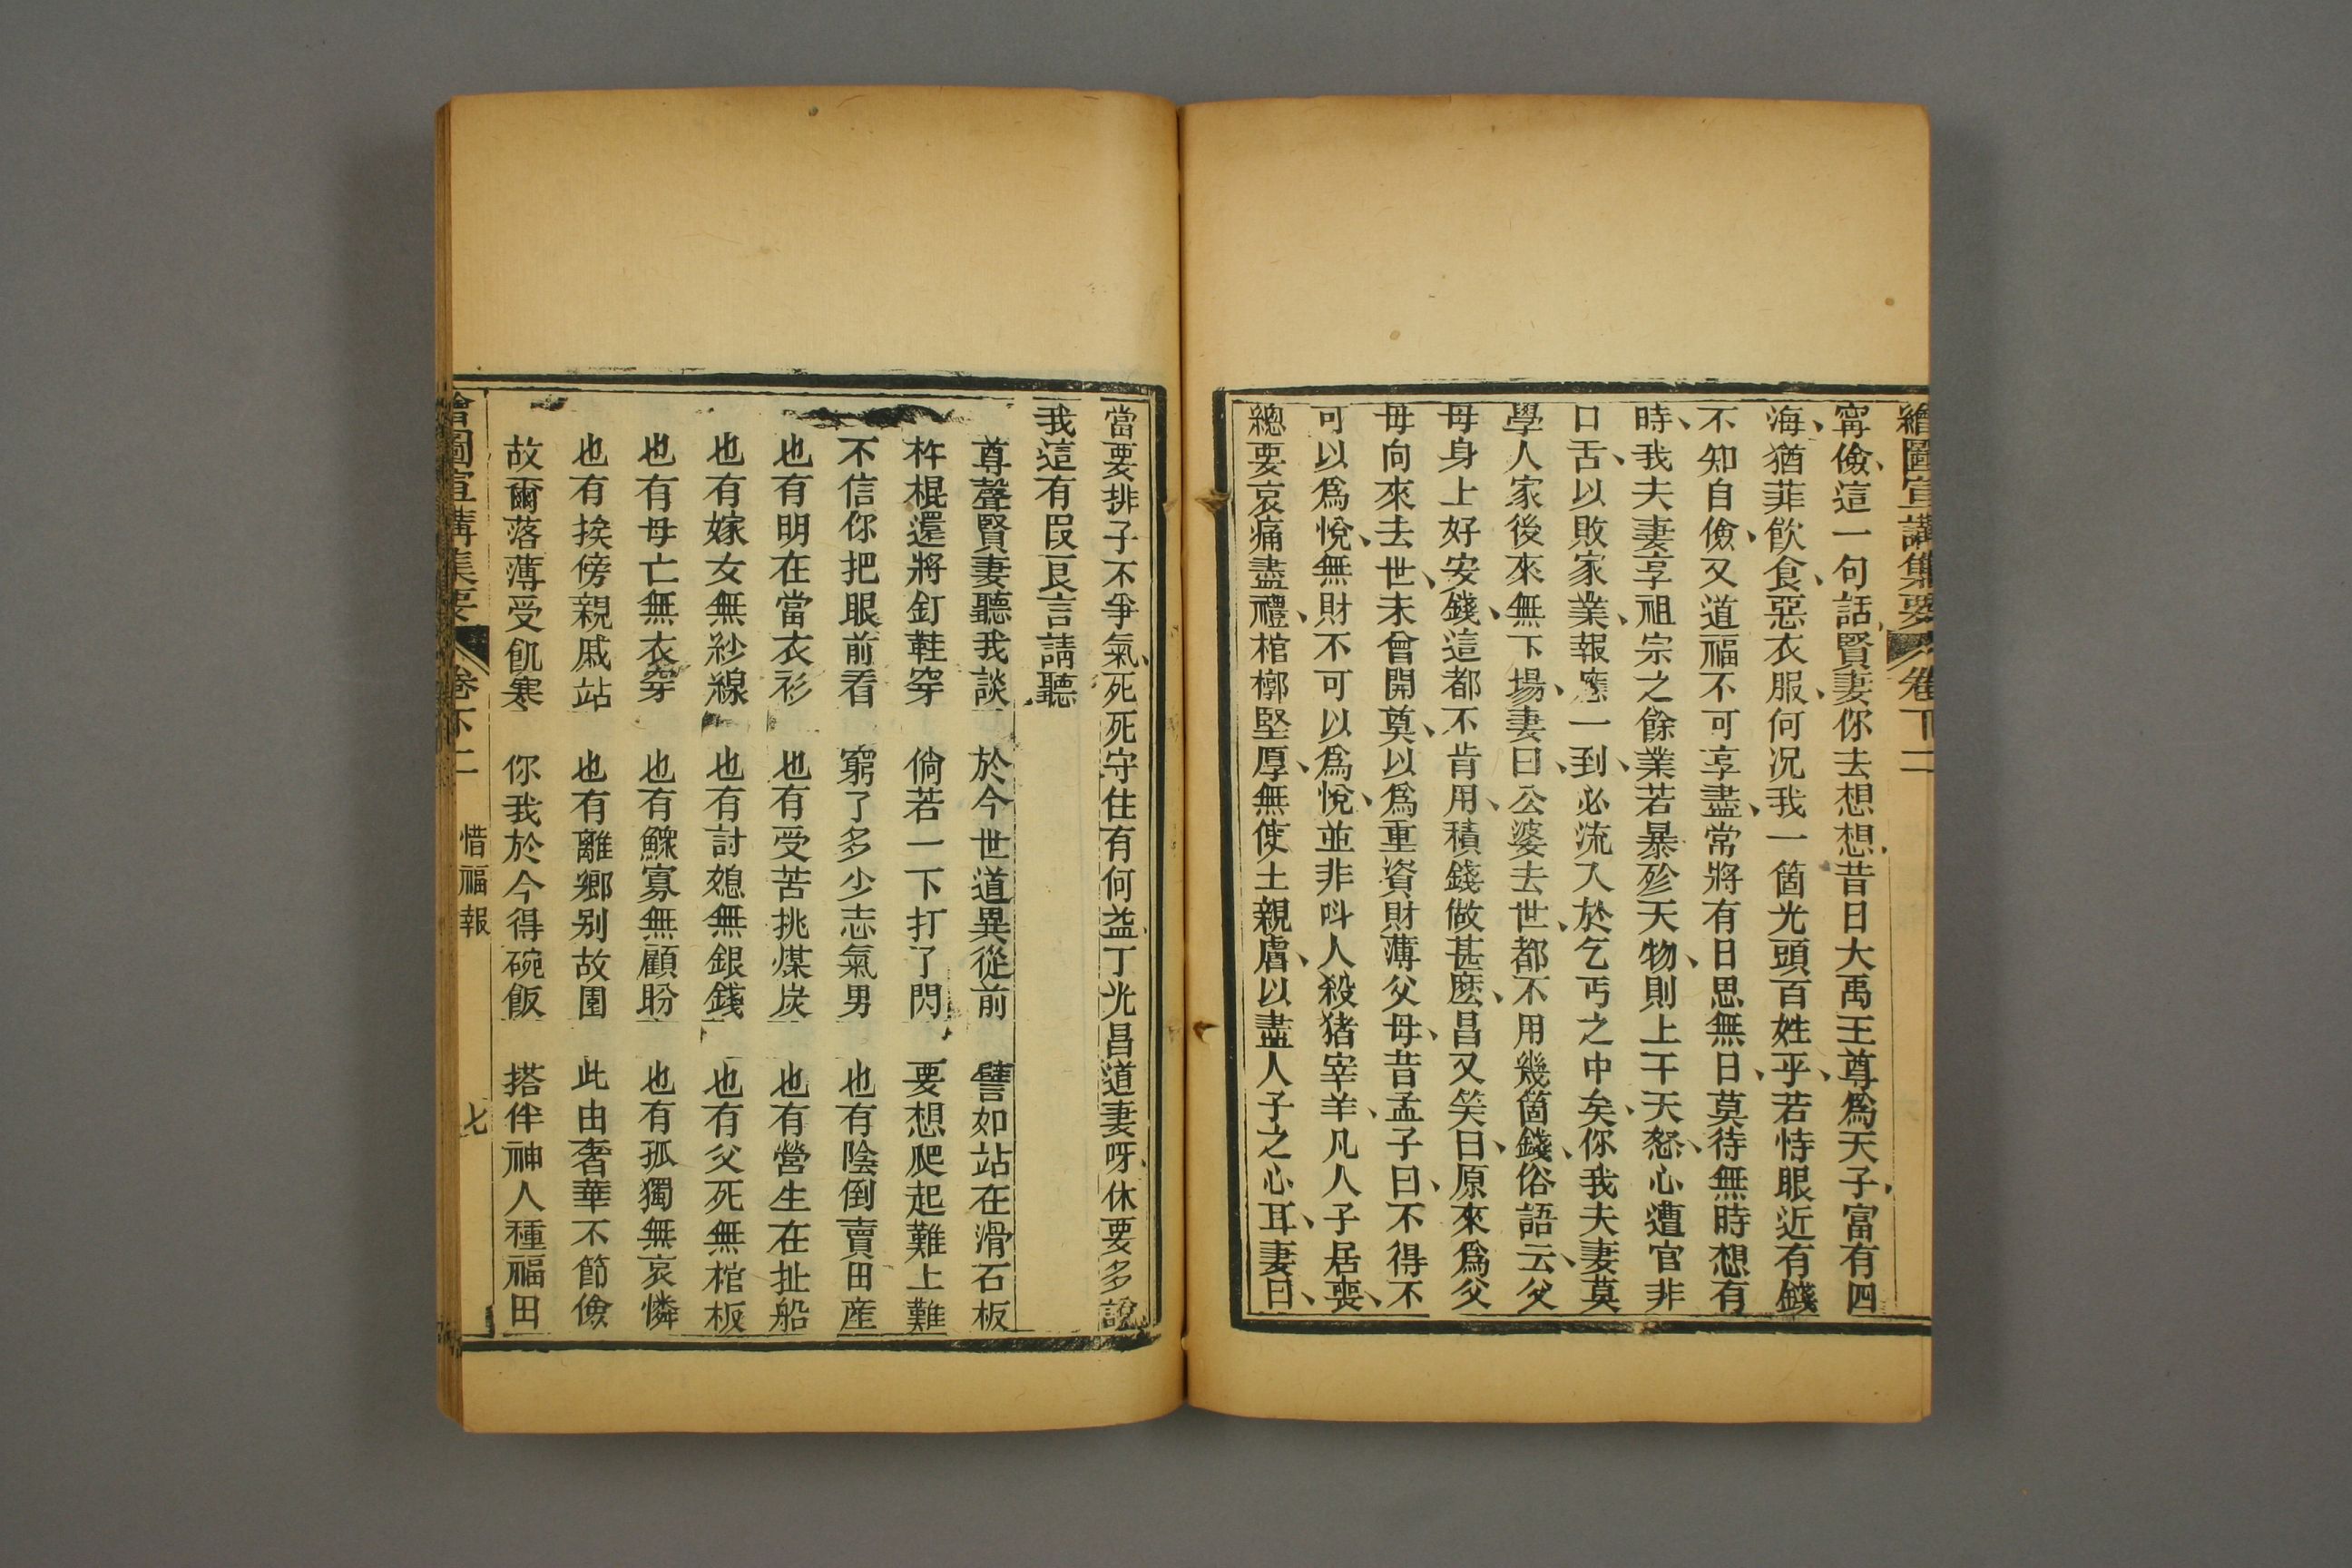 繪圖宣講集要 卷下二
寗儉、這一句話、賢妻你去想想、昔日大禹王尊爲天子、富有四
海、猶菲飲食、惡衣服、何况我一箇光頭百姓乎、若恃眼近有錢
不知自儉、又道福不可享盡、常將有日思無日、莫待無時想有
時、我夫妻享祖宗之餘業、若暴殄天物、則上干天怒、心遭官非
口舌、以敗家業、報應一到、必流入於乞丐之中矣、你我夫妻莫
學人家後來無下場、妻曰、公婆去世、都不用幾箇錢、俗語云、父
母身上好安錢、這都不肯用、積錢做甚麽、昌又笑曰、原來爲父
母向來去世、未曾開奠、以爲重資財薄父母、昔孟子曰、不得不
可以爲悅、無財不可以爲悅、並非呌人殺猪宰羊、凡人子居喪、
總要哀痛盡禮、棺槨堅厚、無使土親膚、以盡人子之心耳、妻曰、
當要排子不爭氣、死死守住有何益、丁光昌道妻呀、休要多說
我這有叚良言請聽
尊聲賢妻聽我談 於今世道異從前 譬如站在滑石板
杵棍還將釘鞋穿 倘若一下打了閃 要想爬起難上難
不信你把眼前看 窮了多少志氣男 也有陰倒賣田産
也有明在當衣衫 也有受苦挑煤炭 也有營生在扯船
也有嫁女無紗線 也有討媳無銀錢 也有父死無棺板
也有母亡無衣穿 也有鰥寡無顧盼 也有孤獨無哀憐
也有挨傍親戚站 也有離鄉别故園 此由奢華不節儉
故爾落薄受飢寒 你我於今得碗飯 搭伴神人種福田
會圖宣講集要 卷下二 惜福報 七